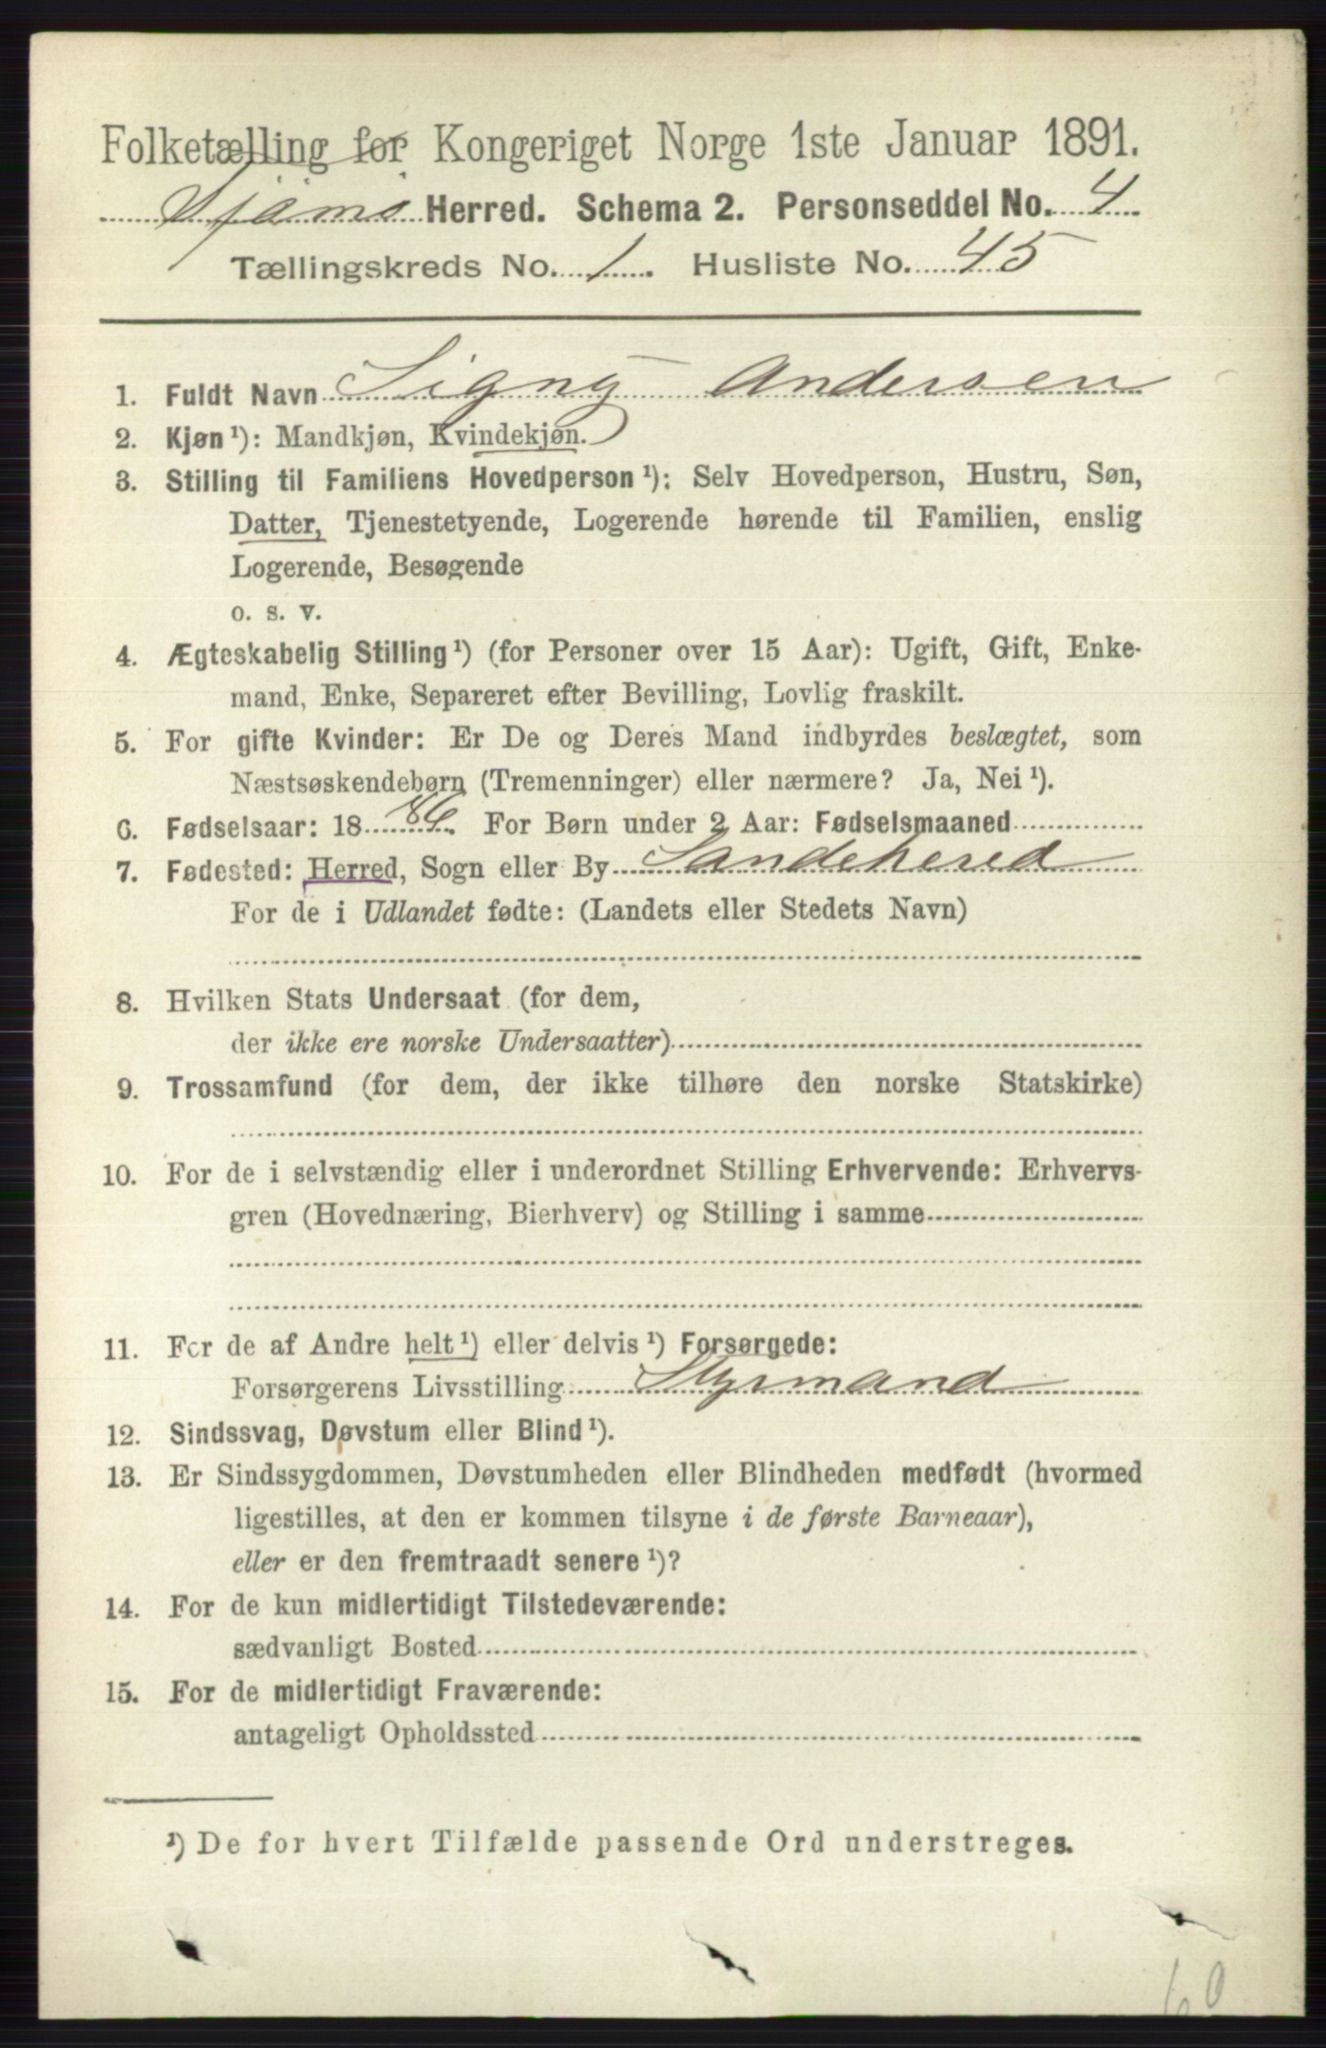 Folketælling for Kongeriget Norge 1ste Januar 1891.
Tjømø Herred. Schema 2. Personseddel No. 4
Tællingskreds No. 1. Husliste No. 45
1. Fuldt Navn Signy Andersen
2. Kjøn ¹): Mandkjøn, Kvindekjøn.
3. Stilling til Familiens Hovedperson ¹): Selv Hovedperson, Hustru, Søn,
Datter, Tjenestetyende, Logerende hørende til Familien, enslig
Logerende, Besøgende
o. s. v.
4. Ægteskabelig Stilling ¹) (for Personer over 15 Aar): Ugift, Gift, Enke-
mand, Enke, Separeret efter Bevilling, Lovlig fraskilt.
5. For gifte Kvinder: Er De og Deres Mand indbyrdes beslægtet, som
Næstsøskendebørn (Tremenninger) eller nærmere? Ja, Nei ¹).
6. Fødselsaar: 1886. For Børn under 2 Aar: Fødselsmaaned
7. Fødested: Herred, Sogn eller By Sandehered
For de i Udlandet fødte: (Landets eller Stedets Navn)
8. Hvilken Stats Undersaat (for dem,
der ikke ere norske Undersaatter)
9. Trossamfund (for dem, der ikke tilhøre den norske Statskirke)
10. For de i selvstændig eller i underordnet Stilling Erhvervende: Erhvervs-
gren (Hovednæring, Bierhverv) og Stilling i samme
11. For de af Andre helt ¹) eller delvis ¹) Forsørgede:
Forsørgerens Livsstilling Styrmand
12. Sindssvag, Døvstum eller Blind ¹).
13. Er Sindssygdommen, Døvstumheden eller Blindheden medfødt (hvormed
ligestilles, at den er kommen tilsyne i de første Barneaar),
eller er den fremtraadt senere ¹)?
14. For de kun midlertidigt Tilstedeværende:
sædvanligt Bosted
15. For de midlertidigt Fraværende:
antageligt Opholdssted
¹) De for hvert Tilfælde passende Ord understreges.
60